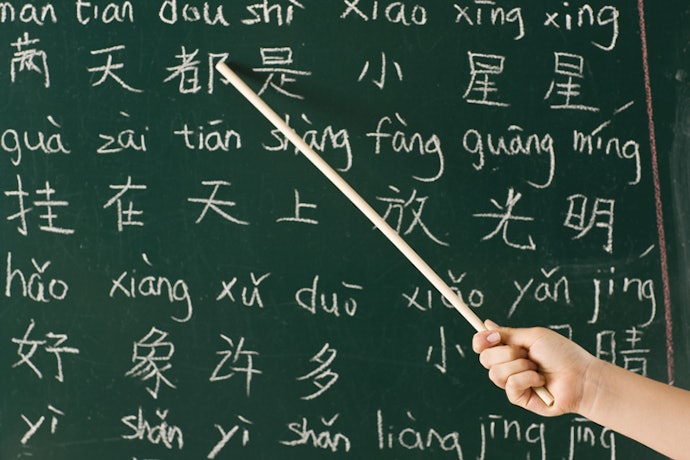 man tian dou shì xiao xīng xīng
满 天 都 是 小 星 星
guà zài tiān shàng fàng guāng míng
挂 在 天 上 放 光 明
hǎo xiàng xǔ duō xiǎo yǎn jīng
好 象 许 多 小 睛
yì shǎn yì shǎn liàng jīng jīng